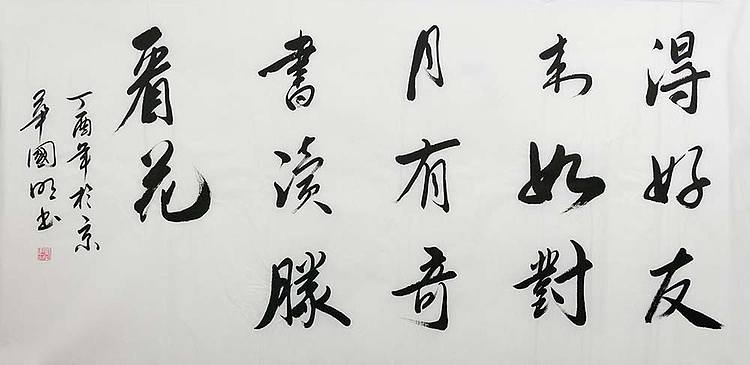 得好友
来如對
月有奇
書讀勝
看花
丁酉年於京
華國明書